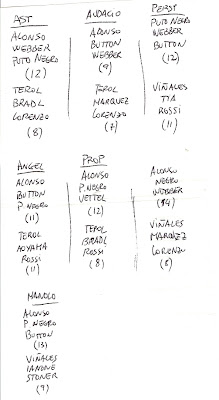 AST
ALONSO
WEBBER
PUTO NEGRO
(12)
TEROL
BRADL
LORENZO
(8)
AUDACIO
ALONSO
BUTTON
WEBBER
(9)
TEROL
MARQUEZ
LORENZO
(7)
PERST
PUTO NEGRO
WEBBER
BUTTON
(12)
VIÑALES
TIA
ROSSI
(11)
ANGEL
ALONSO
BUTTON
P. NEGRO
(11)
TEROL
AOYAMA
ROSSI
(11)
PROP
ALONSO
P. NEGRO
VETTEL
(12)
TEROL
BRADL
ROSSI
(8)
ALONSO
NEGRO
WEBBER
(14)
VIÑALES
MARQUEZ
LORENZO
(8)
MANOLO
ALONSO
P NEGRO
BUTTON
(13)
VIÑALES
IANONE
STONER
(9)